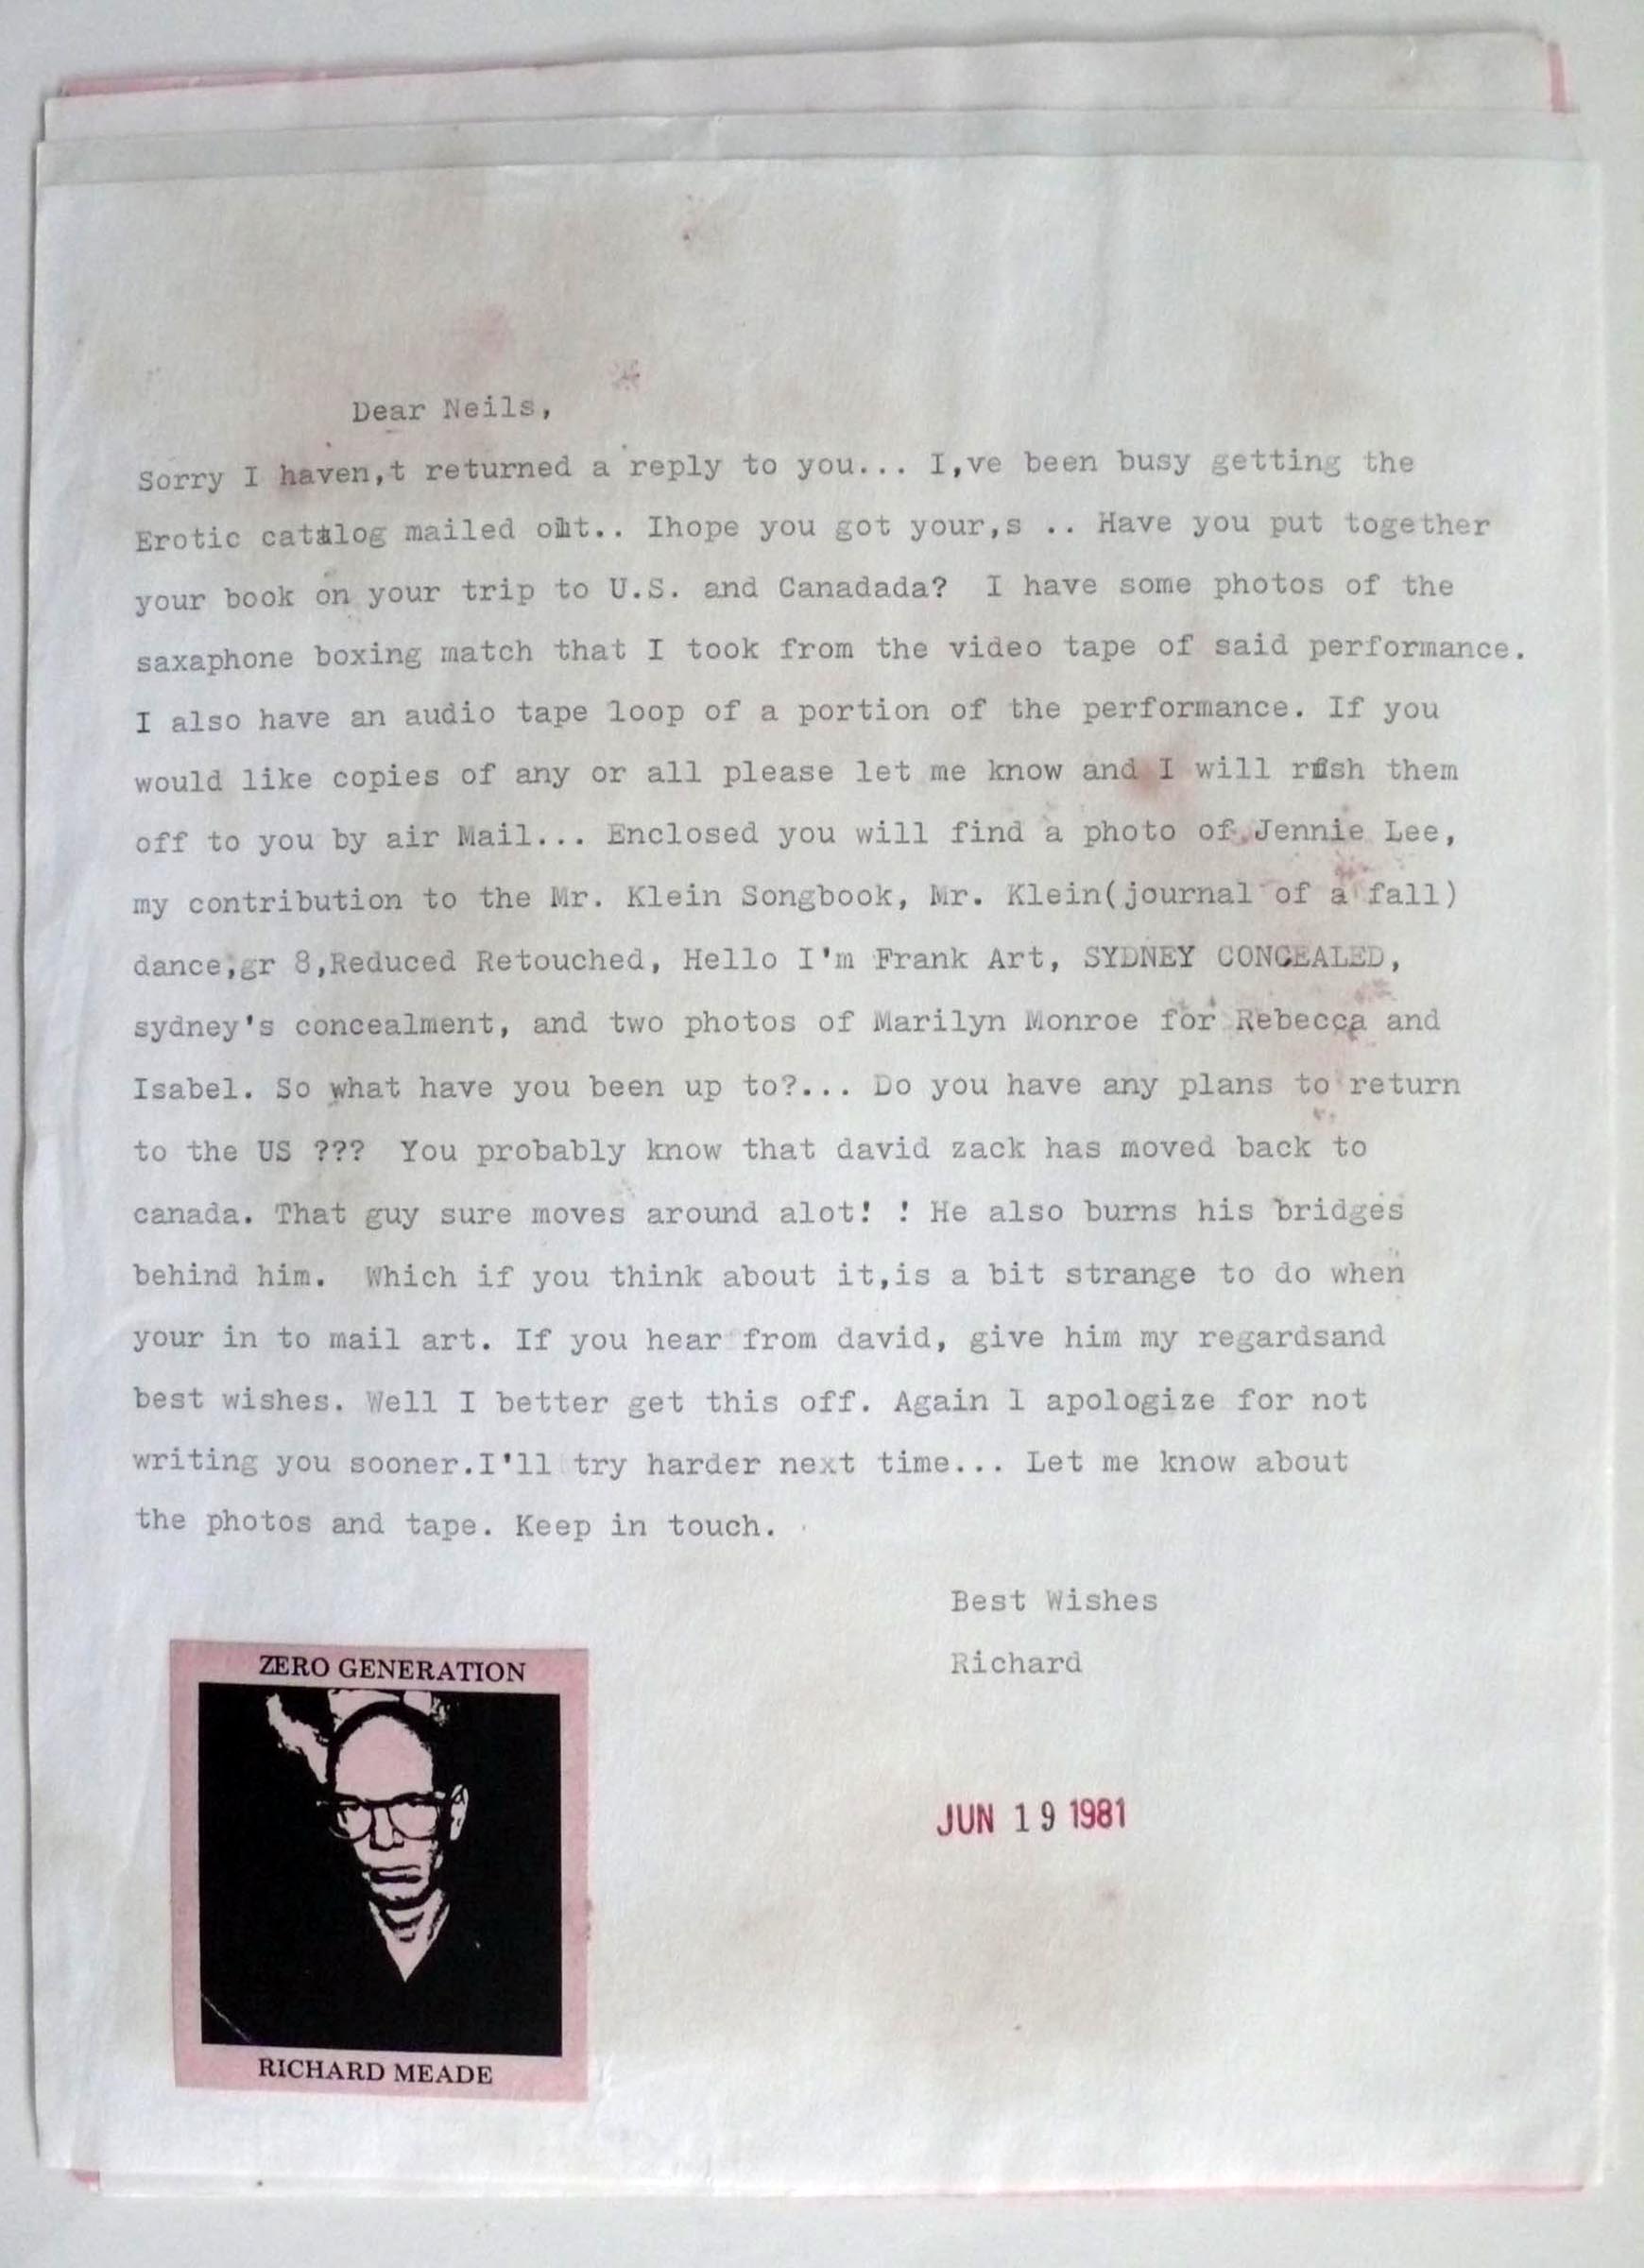 Dear Neils,
Sorry I haven,t returned a reply to you... I,ve been busy getting the
Erotic catalog mailed out.. Ihope you got your,s .. Have you put together
your book on your trip to U.S. and Canadada?  I have some photos of the
saxaphone boxing match that I took from the video tape of said performance.
I also have an audio tape loop of a portion of the performance. If you
would like copies of any or all please let me know and I will rush them
off to you by air Mail... Enclosed you will find a photo of Jennie Lee,
my contribution to the Mr. Klein Songbook, Mr. Klein(journal of a fall)
dance,gr 8,Reduced Retouched, Hello I'm Frank Art, SYDNEY CONCEALED,
sydney's concealment, and two photos of Marilyn Monroe for Rebecca and
Isabel. So what have you been up to?... Do you have any plans to return
to the US ???  You probably know that david zack has moved back to
canada. That guy sure moves around alot! ! He also burns his bridges
behind him.  Which if you think about it,is a bit strange to do when
your in to mail art. If you hear from david, give him my regardsand
best wishes. Well I better get this off. Again I apologize for not
writing you sooner.I'll try harder next time... Let me know about
the photos and tape. Keep in touch.
Best Wishes
Richard
ZERO GENERATION
JUN 19 1981
RICHARD MEADE